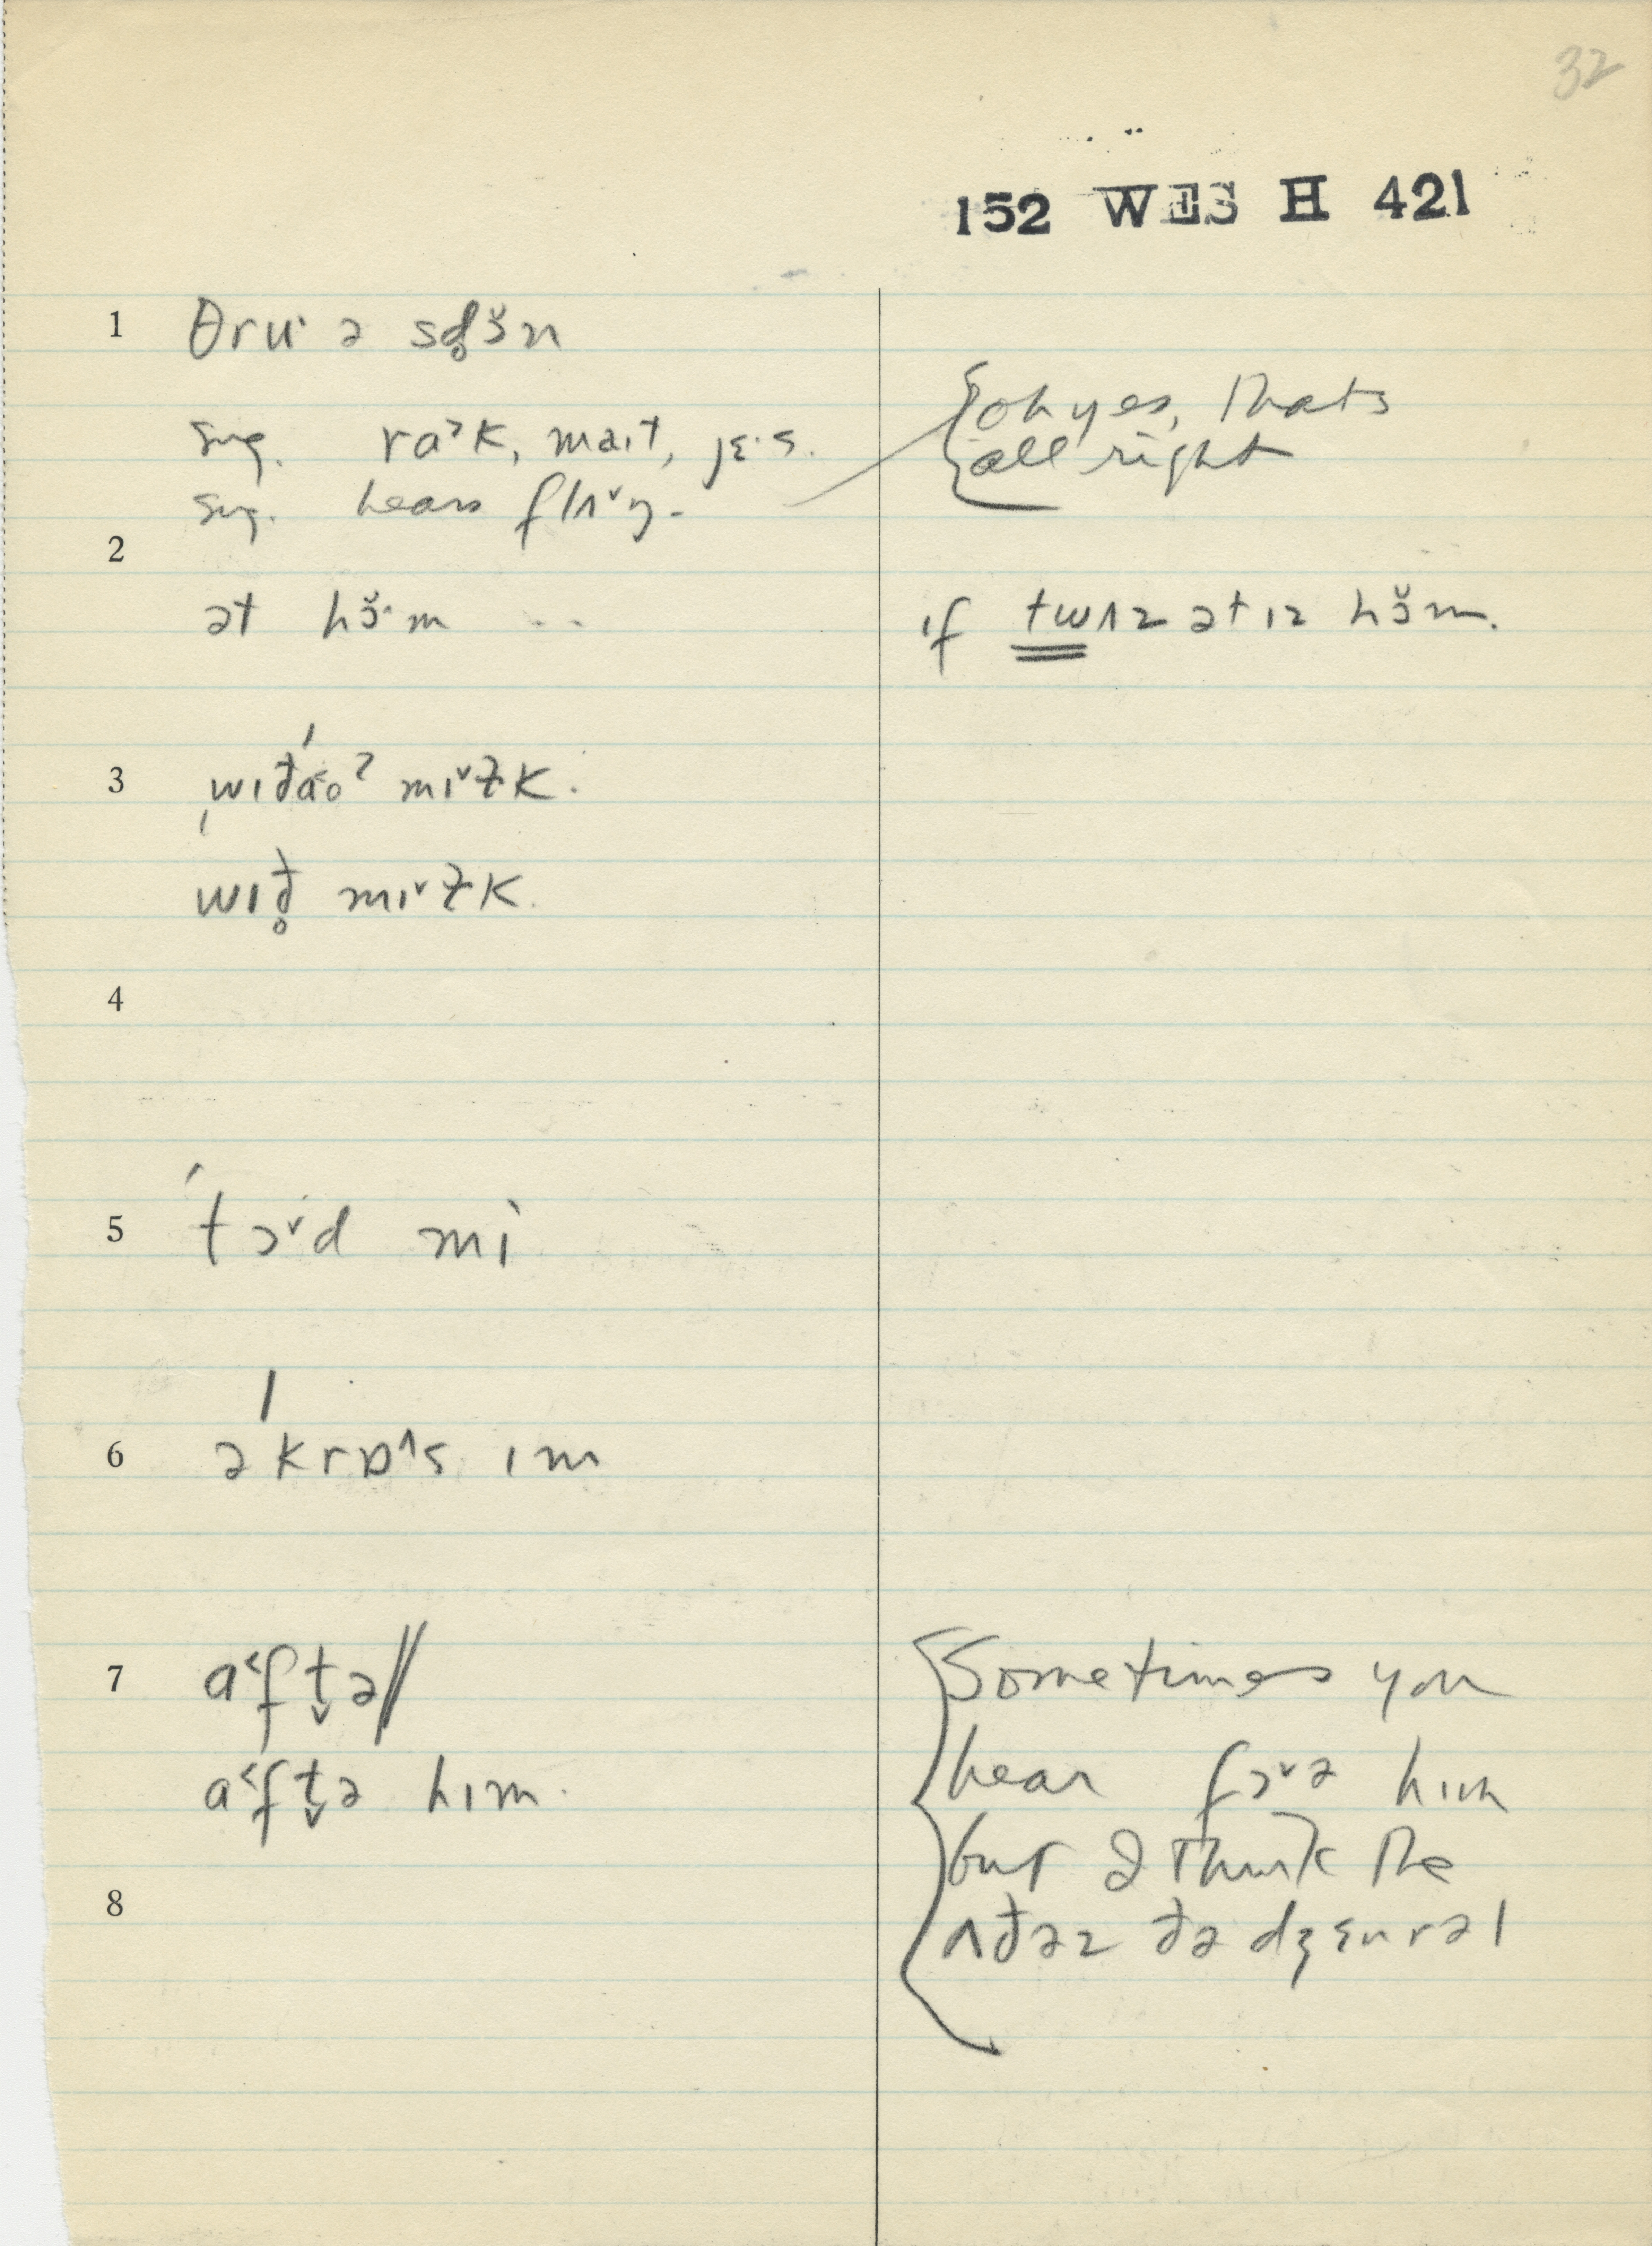 32
152 WES H 421
1 θru· ə sd̥ɔ̆n
sug. ra˃k, maɪt, jɛ·s.
sug. hears flʌ˅ŋ-
{oh yes, that's
all right
2
ət hɔ̆·m ..
if twʌz ət ɪz hɔ̆m.
3 ˌwɪˈðá˂oˀ mɪ˅ɫk.
wɪð̥ mɪ˅ɫk.
4
5 ˈtɔ˅d mɪ̀
6 əˈkrɒ˄s ɪm
7 a˂ft̬ə//
a˂ft̬ə hɪm.
{Sometimes you
hear fɔ˅ə him
but I think the
ʌðəz ðə dʒɛnrəl
8